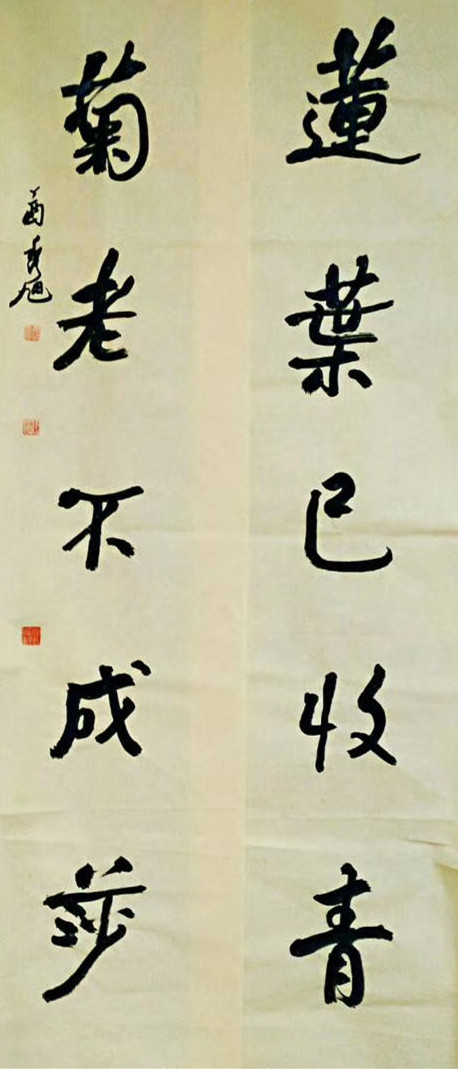 蓮葉已收青
菊老不成莎